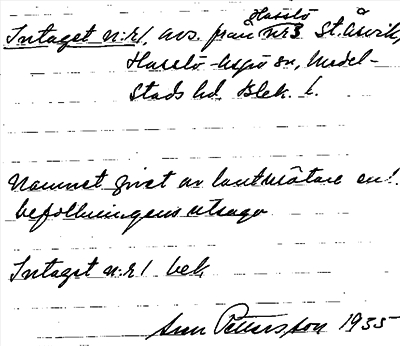 Hasslö
Intaget n:r 1, avs. från nr 3 St. Åsvik,
Hasslö-Aspö sn, Medel-
stads hd. Blek. l.
Namnet givet av lantmätare enl.
befolkningens utsago
Intaget n:r 1 bek.
Sven Pettersson 1935